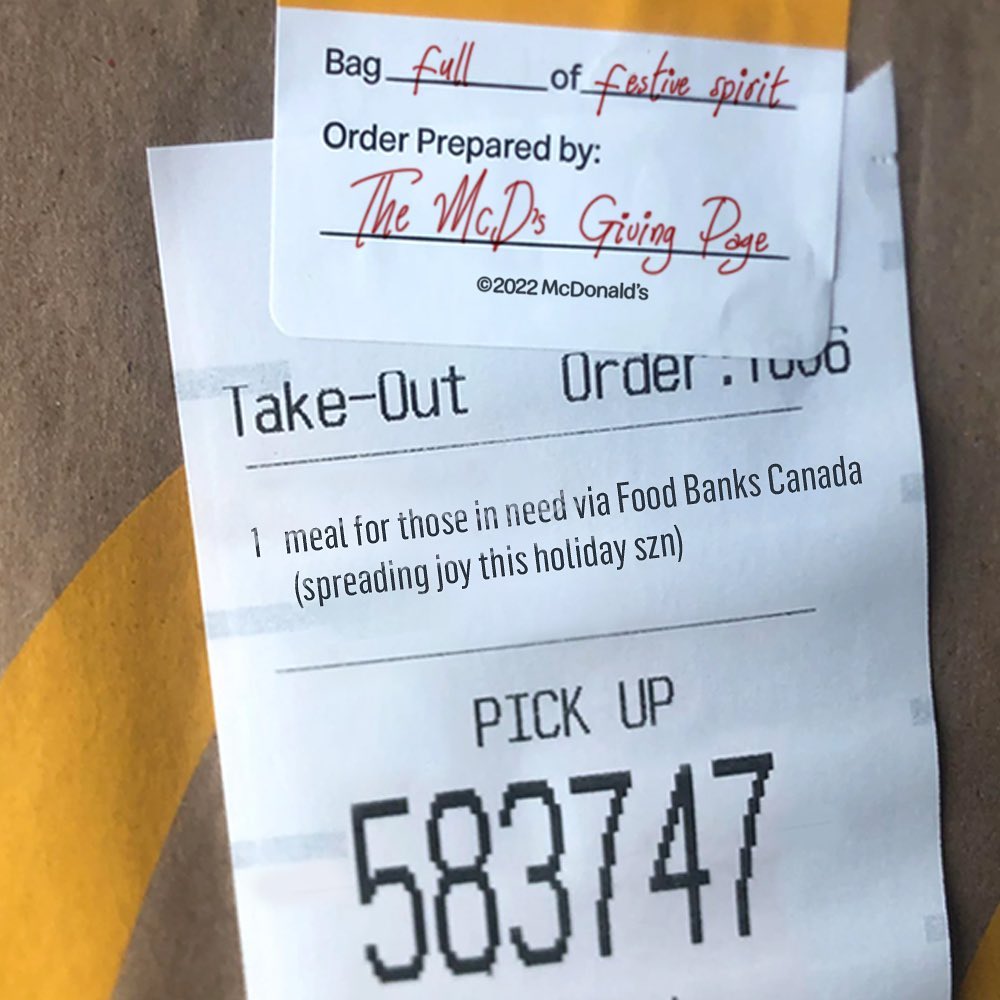 Bag full of festive spirit
Order Prepared by:
The McD's Giving Page
©2022 McDonald's
Take-Out Order
1 meal for those in need via Food Banks Canada
(spreading joy this holiday szn)
PICK UP
583747